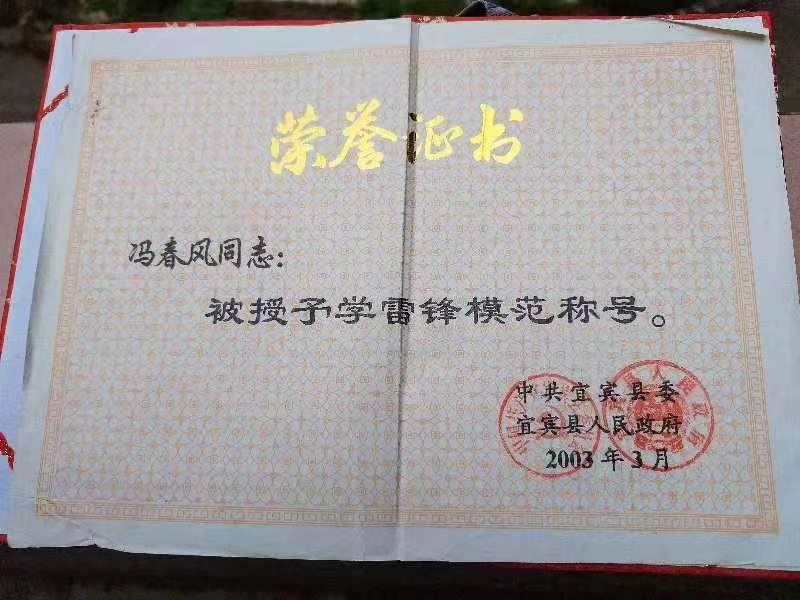 荣誉证书
冯春风同志：
被授予学雷锋模范称号。
中共宜宾县委
宜宾县人民政府
2003年3月